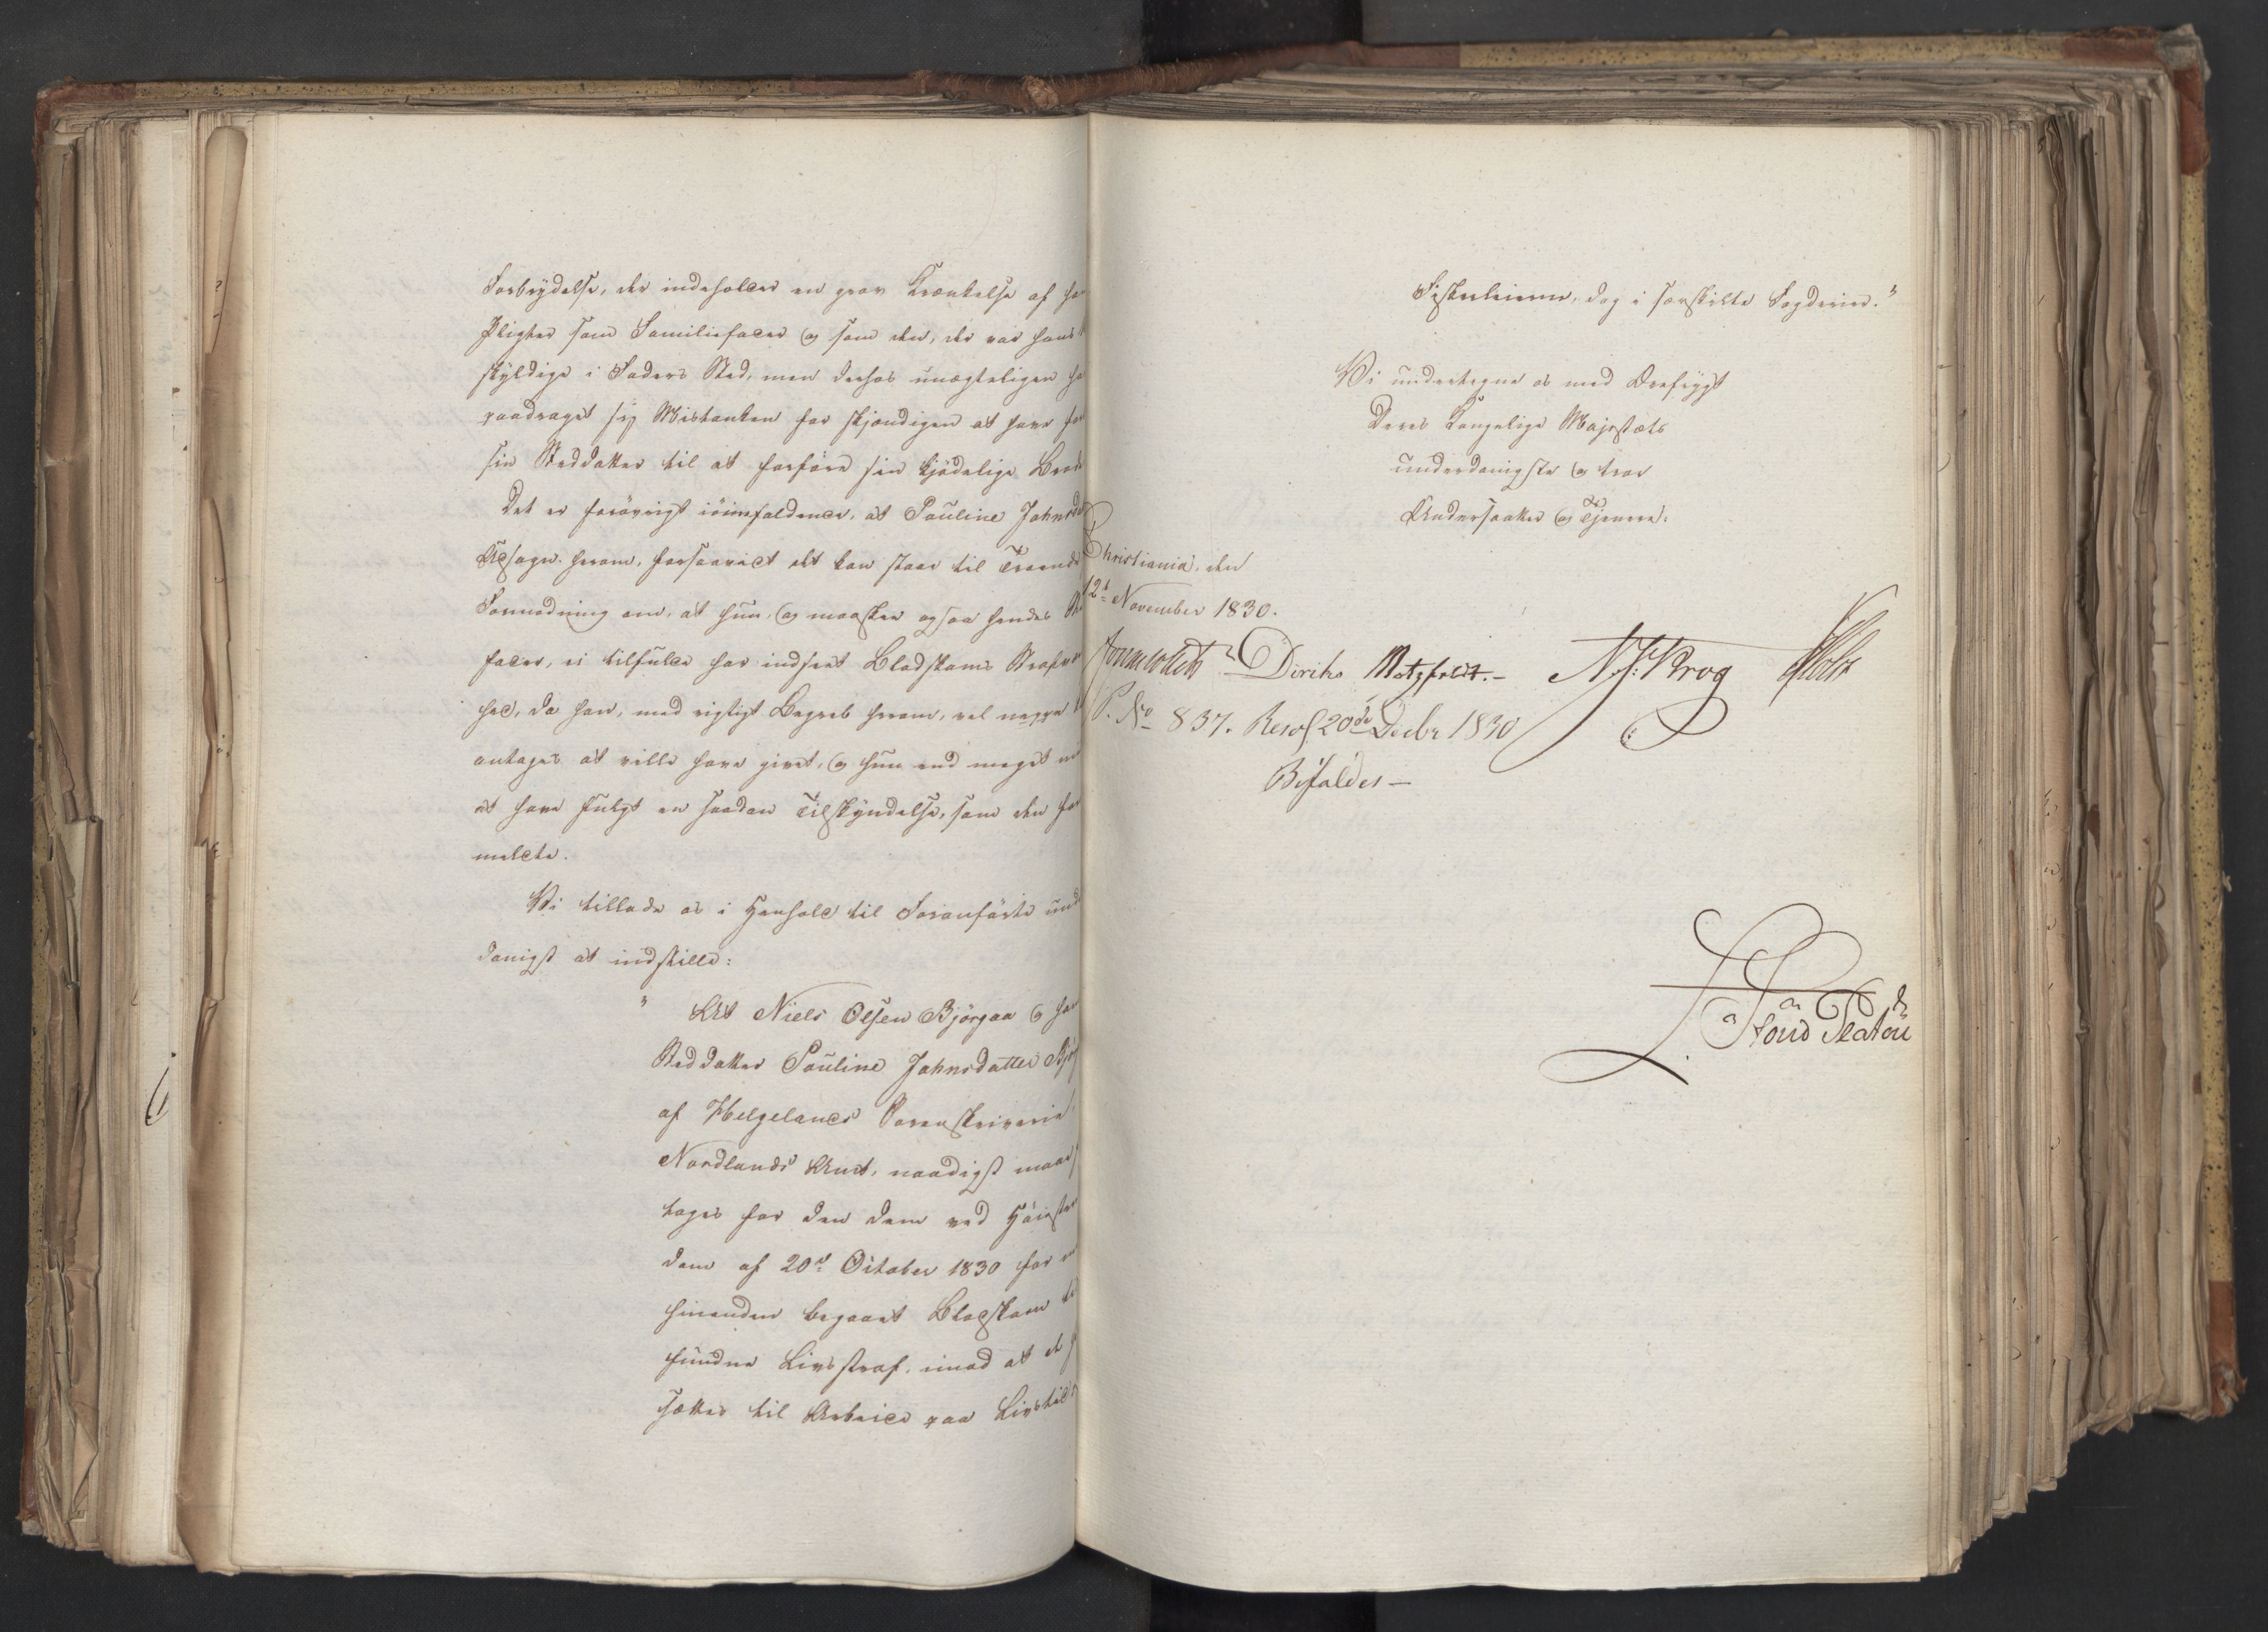 Forbrydelse, der indeholder en grov Krænkelse af
Pligter som Familiefader og som den, der var hans
skyldige i Faders Sted, men derhos unægteligen
paadraget sig Mistanken for skjændigen at have
sin Steddatter til at forføre sin kjødelige
Det er forøvrigt iöinefaldende, at Pauline Johnsd
Udsagn herom, forsaavidt det kan staae til Troende
Formodning om, at hun, og maaskee ogsaa hendes
fader, ei tilfulde har indseet Blodskams Strafvær
hed, da han, med rigtigt Begreb herom, vel neppe
antages at ville have givet, og hun end meget
at have fulgt en saadan Tilskyndelse, som den
meldte.
Vi tillade os i Henhold til Foranførte und
danigst at indstille:
" At Niels Olsen Björgaa og
Steddatter Pauline Johnsdatter
af Helgelands Sorenskriverie
Nordlands Amt, naadigst maae
tages for den dem ved Höieste
dom af 20d October 1830 for
hinanden begaaet Blodskam
fundne Livsstraf, imod at de
sættes til Arbeide paa Livstid
Fiskerleierne, dog i særskilte Fogderier."
Vi undertegne os med Ærefrygt
Deres Kongelige Majestæts
underdanigste og troe
Undersaatter og Tjenere.
Christiania, den
12d November 1830.
Sommerhielm Diriks Motzfeldt. N. J. Krog Holst
P. No 837. Resol. 20de Decbr 1830
Bifaldes